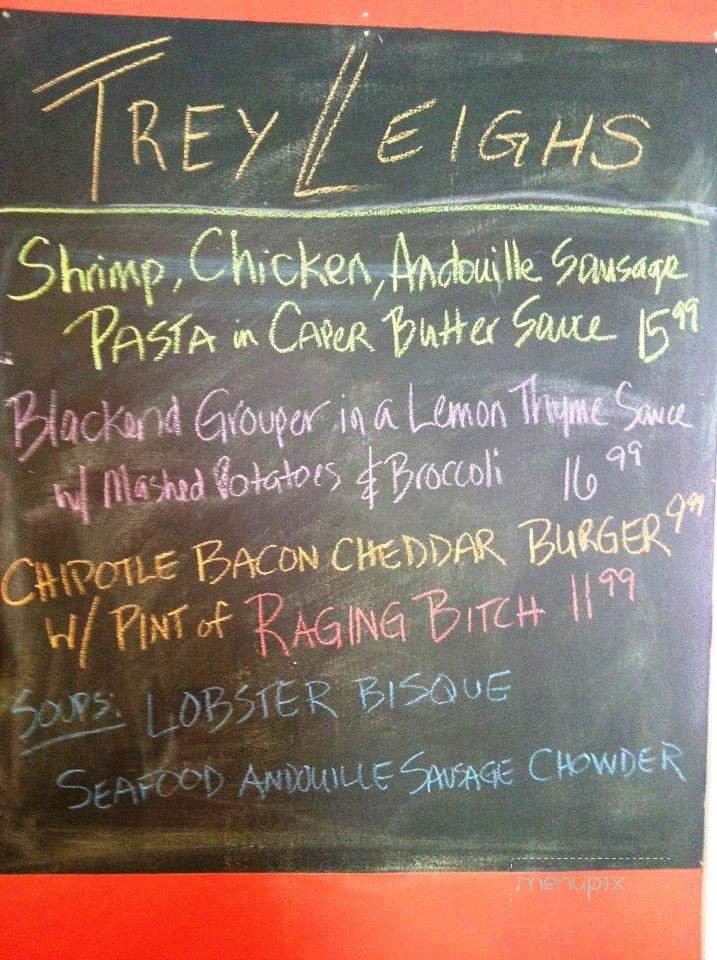 TREY LEIGHS
Shrimp, Chicken, Andouille Sausage
PASTA in CAPER Butter Sauce 15 99
Blackend Grouper in a Lemon Thyme Sauce
w/ Mashed Potatoes & Broccoli 16 99
CHIPOTLE BACON CHEDDAR BURGER 9 99
W/ PINT of RAGING BITCH 11 99
SOUPS: LOBSTER BISQUE
SEAFOOD ANDOUILLE SAUSAGE CHOWDER
menupix